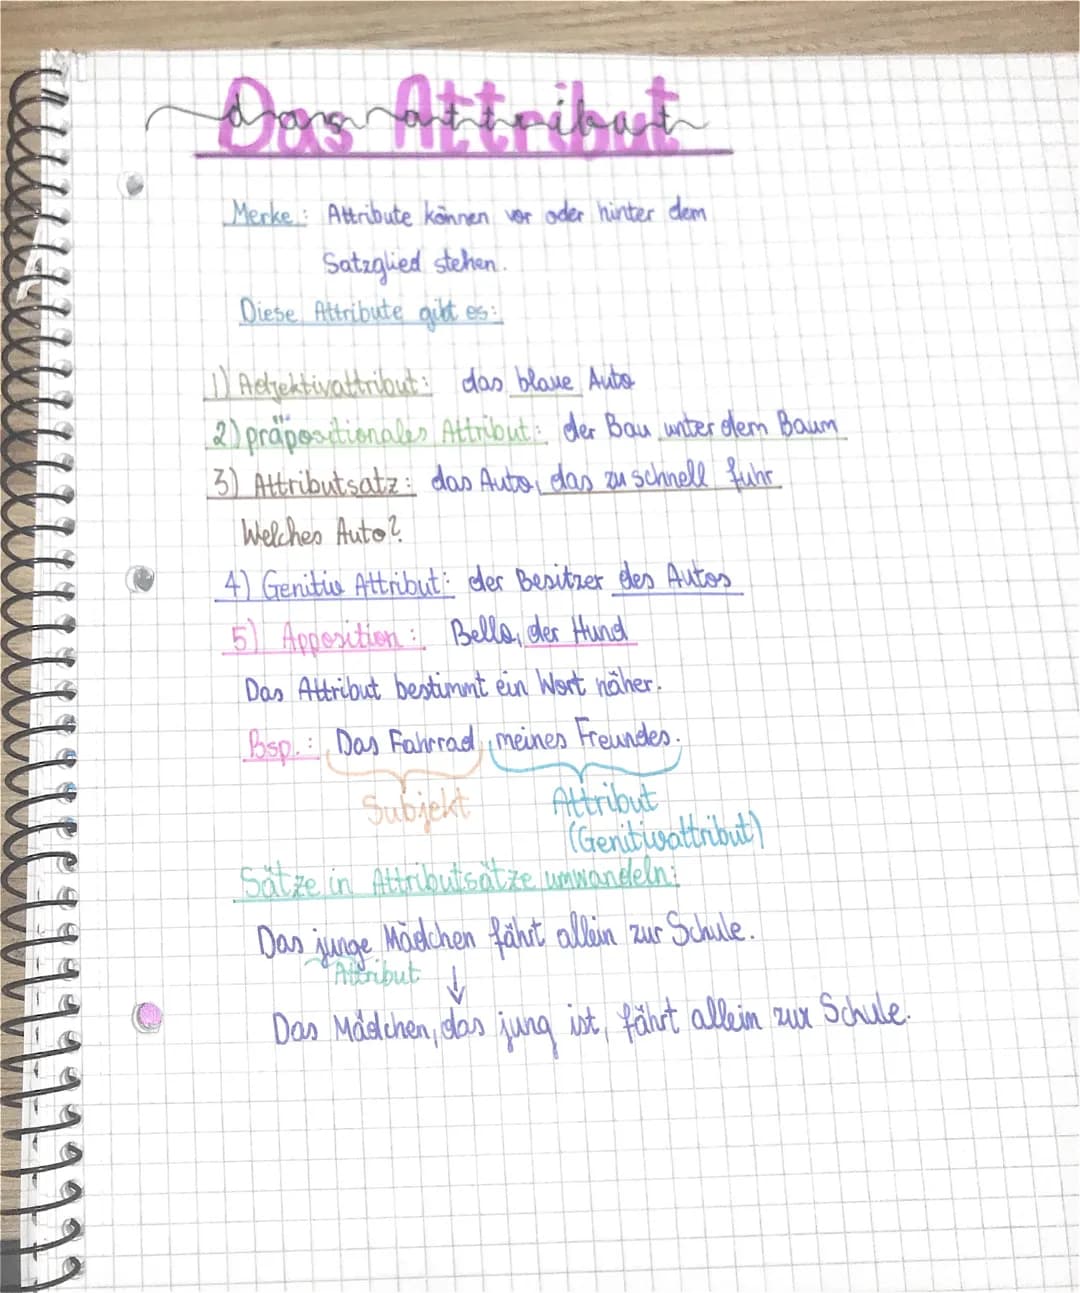 Das Attribut
das attribut
Merke: Attribute können vor oder hinter dem
Satzglied stehen.
Diese Attribute gibt es:
1) Adjektivattribut: das blaue Auto
2) präpositionales Attribut: der Bau unter dem Baum
3) Attributsatz: das Auto, das zu schnell fuhr
Welches Auto?
4) Genitiv Attribut: der Besitzer des Autos
5) Apposition: Bello, der Hund
Das Attribut bestimmt ein Wort näher.
Bsp.: Das Fahrrad meines Freundes.
Subjekt Attribut
(Genitivattribut)
Sätze in Attributsätze umwandeln:
Das junge Mädchen fährt allein zur Schule.
Attribut ↓
Das Mädchen, das jung ist, fährt allein zur Schule.